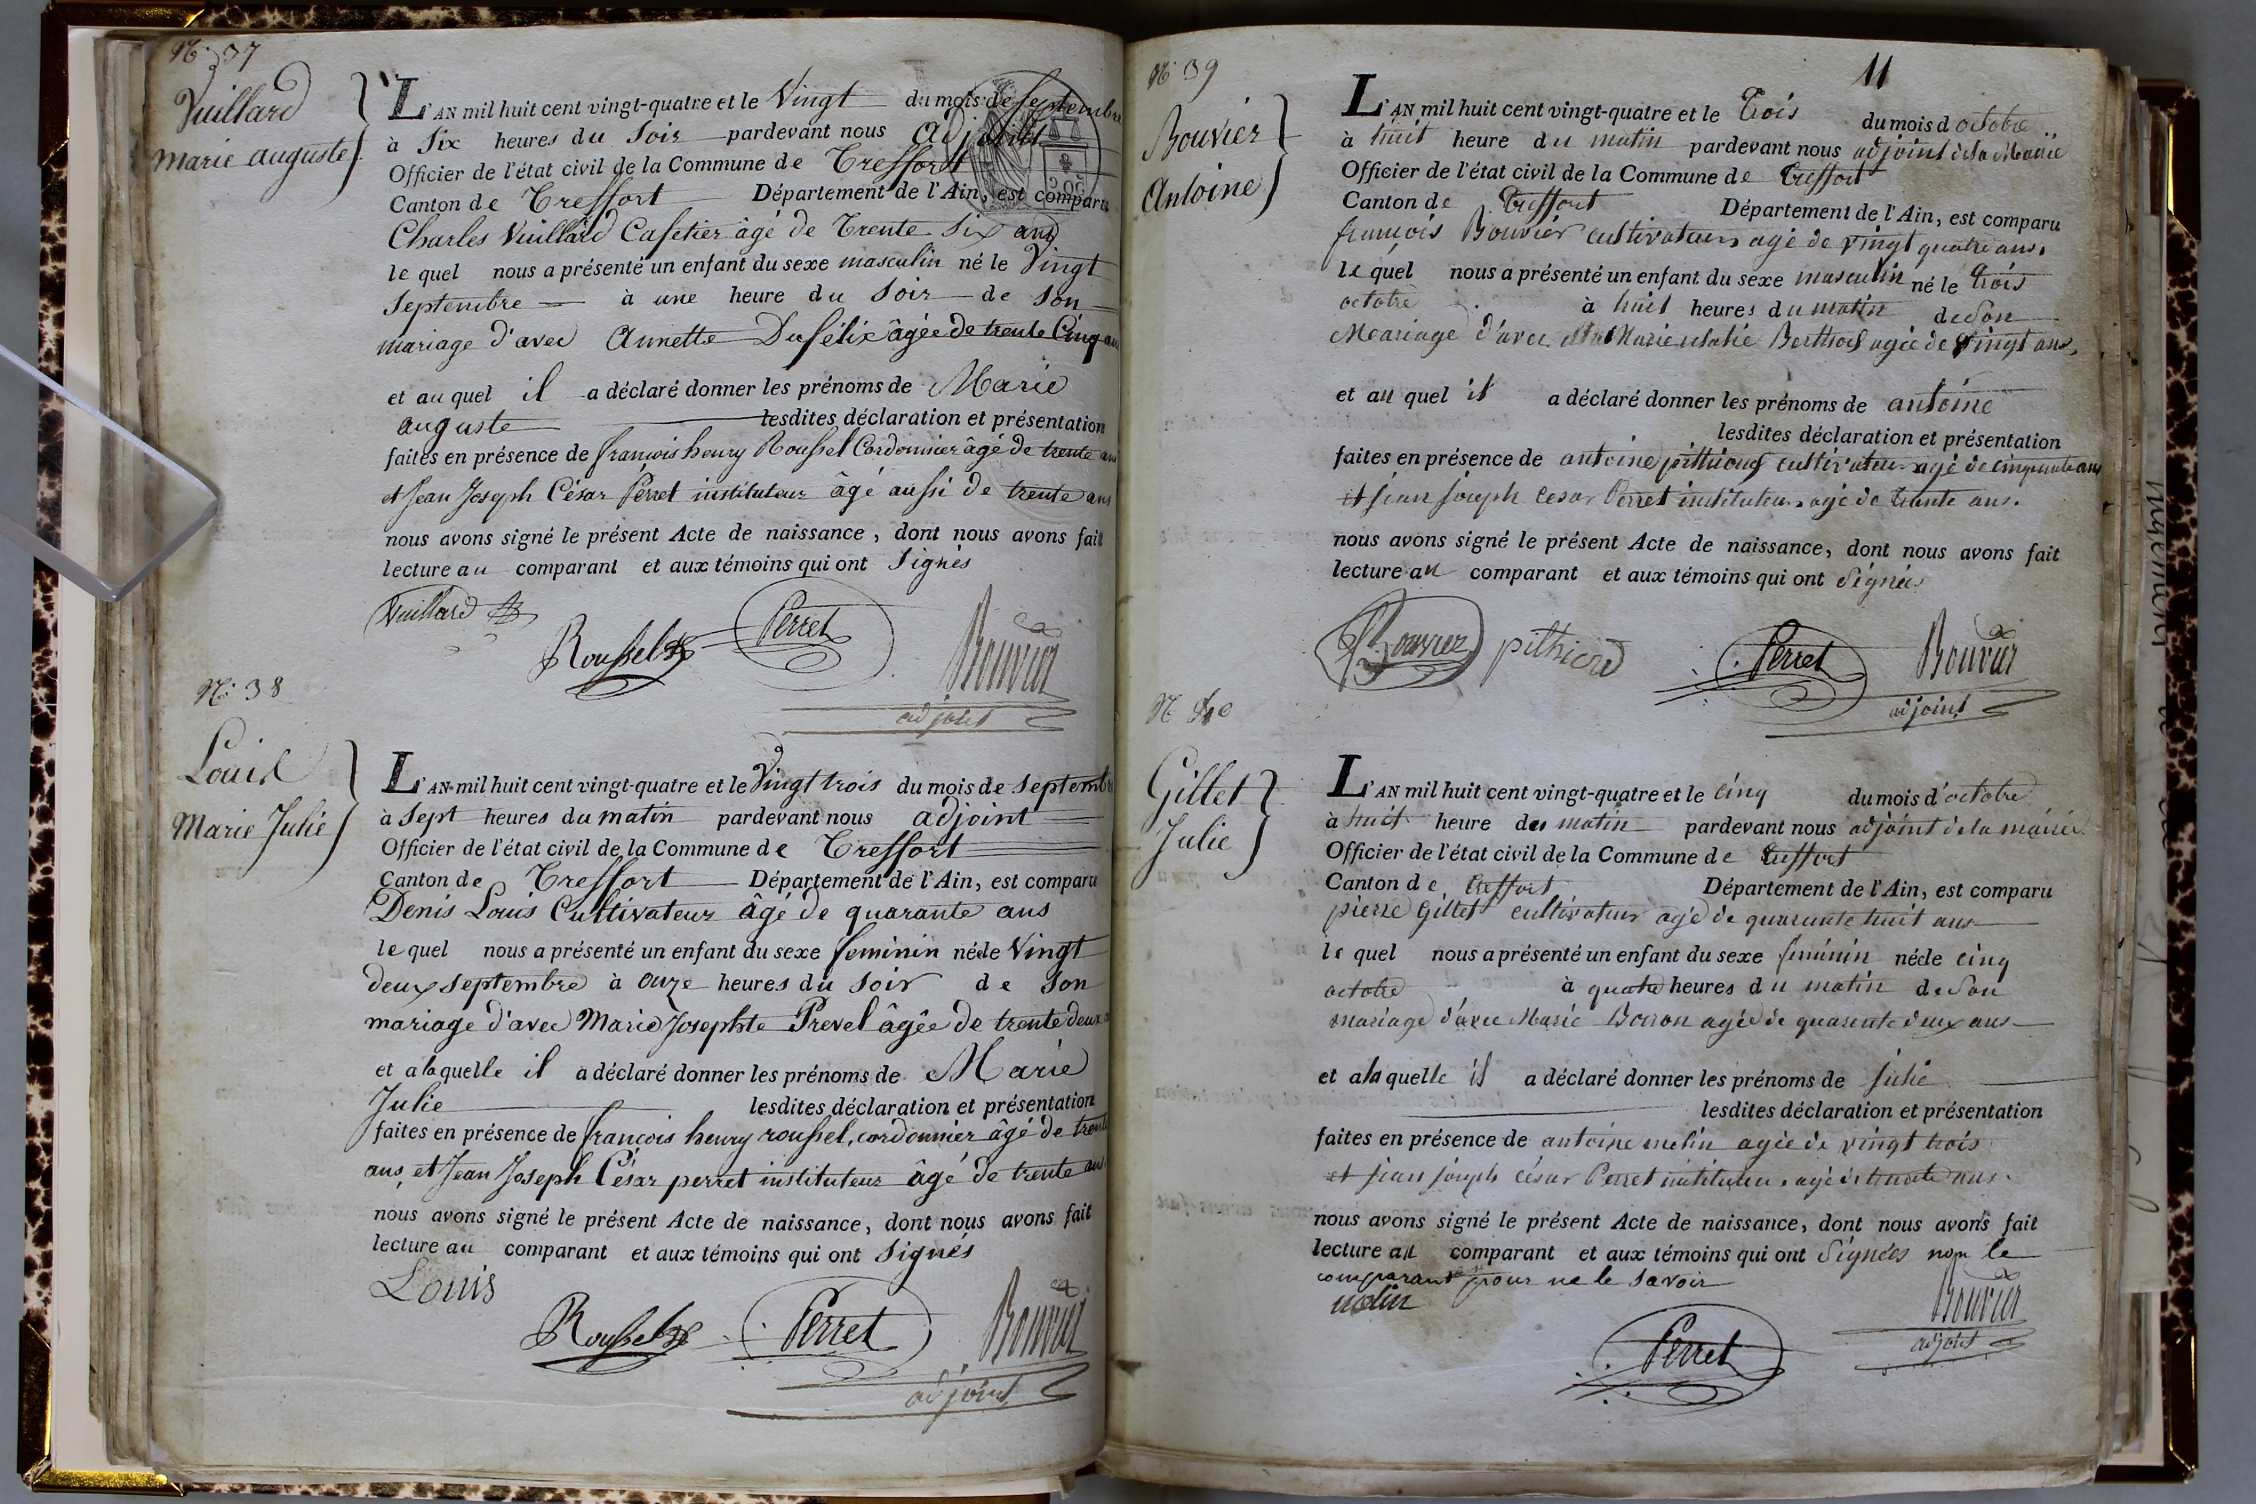 N.° 37
Vuillard
marie auguste
L'AN mil huit cent vingt-quatre et le Vingt du mois de Septembre
à Six heures du Soir pardevant nous adjoint
Officier de l'état civil de la Commune de Treffort
Canton de Treffort Département de l'Ain, est comparu
Charles Vuillard Cafetier âgé de Trente Six ans
le quel nous a présenté un enfant du sexe masculin né le Vingt
Septembre à une heure du Soir de Son
mariage d'avec Annette Dufélix âgée de trente Cinq ans
et au quel il a déclaré donner les prénoms de Marie
auguste lesdites déclaration et présentation
faites en présence de françois henry Roussel Cordonnier âgé de trente ans
et Jean Joseph César Perret instituteur âgé aussi de trente ans
nous avons signé le présent Acte de naissance, dont nous avons fait
lecture au comparant et aux témoins qui ont Signés
Vuillard
Roussel Perret Bouvier
adjoint
N.° 38
Louis
Marie Julie
L'AN mil huit cent vingt-quatre et le Vingt trois du mois de Septembre
à Sept heures du matin pardevant nous adjoint
Officier de l'état civil de la Commune de Treffort
Canton de Treffort Département de l'Ain, est comparu
Denis Louis Cultivateur âgé de quarante ans
le quel nous a présenté un enfant du sexe feminin née le Vingt
deux septembre à onze heures du soir de Son
mariage d'avec Marie Josephte Prevel âgée de trente deux
et a la quelle il a déclaré donner les prénoms de Marie
Julie lesdites déclaration et présentation
faites en présence de françois henry roussel, cordonnier âgé de trente
ans, et Jean Joseph César perret instituteur âgé de trente ans
nous avons signé le présent Acte de naissance, dont nous avons fait
lecture au comparant et aux témoins qui ont Signés
Louis
Roussel Perret Bouvier
adjoint
11
N.° 39
Bouvier
Antoine
L'AN mil huit cent vingt-quatre et le Trois du mois d octobre
à huit heure du matin pardevant nous adjoint de la Mairie
Officier de l'état civil de la Commune de Treffort
Canton de Treffort Département de l'Ain, est comparu
françois Bouvier cultivateur agé de vingt quatre ans.
le quel nous a présenté un enfant du sexe masculin né le trois
octobre à huit heures du matin de Son
Mariage d'avec Marie Berthod agée de vingt ans,
et au quel il a déclaré donner les prénoms de antoine
lesdites déclaration et présentation
faites en présence de antoine pithioud cultivateur agé de cinquante ans
et jean joseph cesar Perret instituteur agé de trente ans.
nous avons signé le présent Acte de naissance, dont nous avons fait
lecture au comparant et aux témoins qui ont Signées
Bouvier pithiord Perret Bouvier
adjoint
N.° 40
Gillet
Julie
L'AN mil huit cent vingt-quatre et le cinq du mois d'octobre
à huit heure du matin pardevant nous adjoint de la mairie
Officier de l'état civil de la Commune de Treffort
Canton de Treffort Département de l'Ain, est comparu
pierre Gillet cultivateur agé de quarante huit ans
le quel nous a présenté un enfant du sexe feminin née le cinq
octobre à quatre heures du matin de Son
mariage d'avec Marie Borron agée de quarente deux ans
et a la quelle il a déclaré donner les prénoms de julie
lesdites déclaration et présentation
faites en présence de antoine melin agée de vingt trois
et jean joseph césar Perret instituteur agé de trente ans.
nous avons signé le présent Acte de naissance, dont nous avons fait
lecture au comparant et aux témoins qui ont Signées non le
comparant pour ne le savoir
melin Bouvier
Perret adjoint